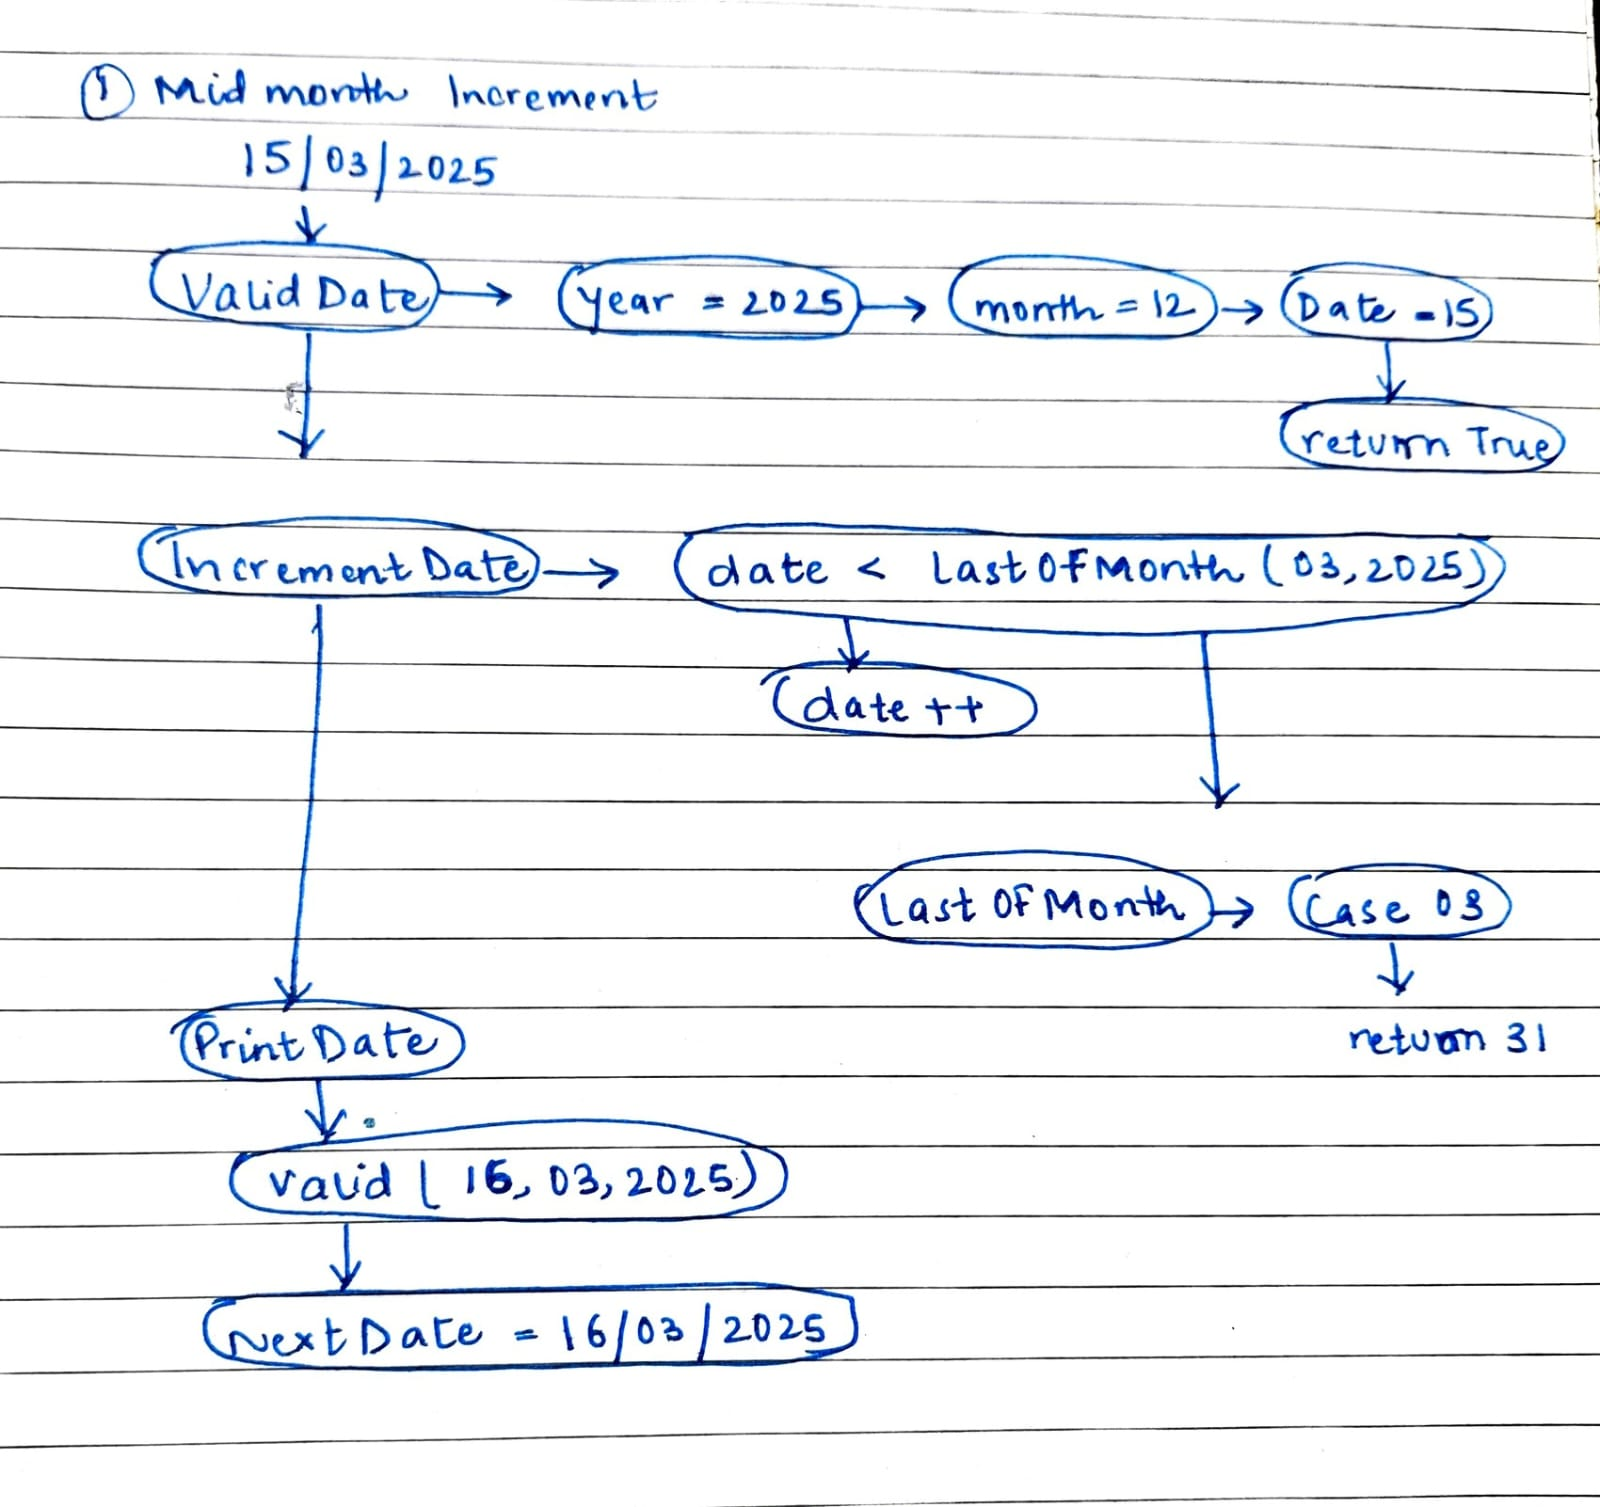 ① Mid month Increment
15/03/2025
Valid Date → year = 2025 → month = 12 → Date = 15
return True
Increment Date → date < Last Of Month (03, 2025)
date ++
Last Of Month → Case 03
return 31
Print Date
valid ( 16, 03, 2025)
Next Date = 16/03/2025